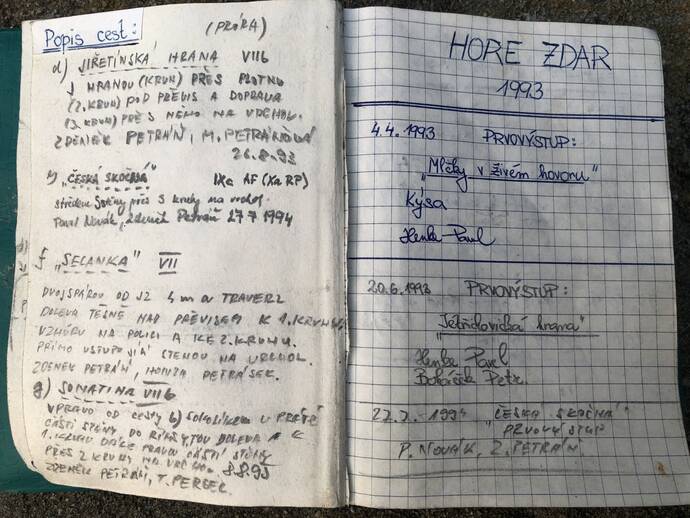 Popis cest:
(PRÓRA)
d) JIŘETÍNSKÁ HRANA VIIb
J HRANOU (KRUH) PŘES PLOTNU
(2. KRUH) POD PŘEVIS A DOPRAVA
(3. KRUH) PŘES NEHO NA VRCHOL.
ZDENĚK PETRÁŇ, M. PETRÁŇOVÁ
26.8.93
"ČESKÁ SKOČNÁ" IXc AF (Xa RP)
středem stěny přes 5 kruhy na vrchol.
Pavel Novák, Zdeněk Petráň 27 7 1994
f "SELANKA" VII
DVOJSPÁROU OD JZ 4m A TRAVERZ
DOLEVA TĚSNĚ NAD PŘEVISEM K 1. KRUHU,
VZHŮRU NA POLICI A KE 2. KRUHU.
PŘÍMO STĚNOU NA VRCHOL.
ZDENĚK PETRÁŇ, HONZA PETRÁSEK.
g) SONATINA VIIb
VPRAVO OD CESTY b) SOKOLÍKEM V PRAVÉ
ČÁSTI STĚNY DO ŘÍMSY, TOU DOLEVA K
1. KRUHU DÁLE PRAVOU ČÁSTÍ STĚNY
PŘES 2 KRUHY NA VRCHOL. 8.8.95
ZDENĚK PETRÁŇ, T. PERGER.
HOŘE ZDAR
1993
4.4.1993 PRVOVÝSTUP:
"Mlčky v živém hovoru"
Kýsa
Henke Pavel
20.6.1993 PRVOVÝSTUP:
"Jetřichovická hrana"
Henke Pavel
Boháček Petr.
27.7.-1994 "ČESKÁ SKOČNÁ"
PRVOVÝSTUP
P. NOVÁK, Z. PETRÁŇ